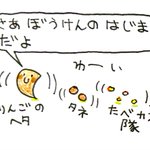 さあ ぼうけんの はじま
だよ
わーい
りんごの
ヘタ
タネ
たべカ
隊